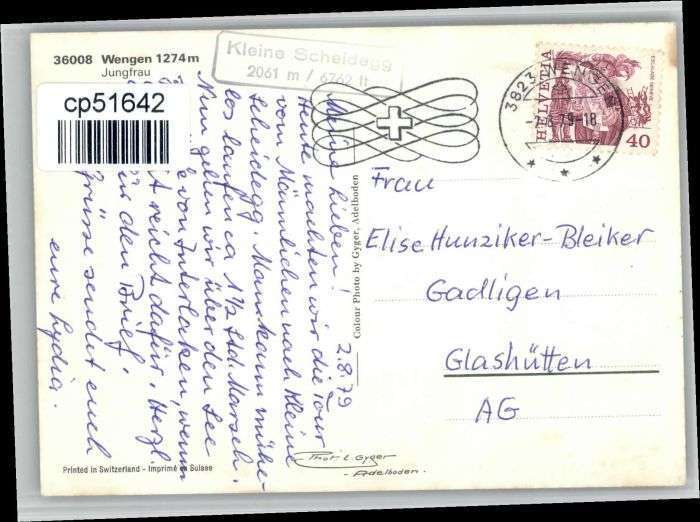 36008 Wengen 1274 m
Jungfrau
cp51642
Kleine Scheidegg
2061 m / 6762 ft
3823 WENGEN
-18
HELVETIA
40
2.8.79
Meine Lieben!
Heute machten wir die Tour
vom Männlichen nach Kleine
Scheidegg. Man kann mühe-
los laufen ca 1½ Std. Marsch.
Nun gehen wir über den See
von Interlaken, wenn
reicht dafür. Herzl.
den Brief.
Grüsse sendet euch
eure Lydia.
Frau
Elise Hunziker-Bleiker
Gadligen
Glashütten
AG
Colour Photo by Gyger, Adelboden
Phot. E. Gyger
- Adelboden -
Printed in Switzerland - Imprimé en Suisse